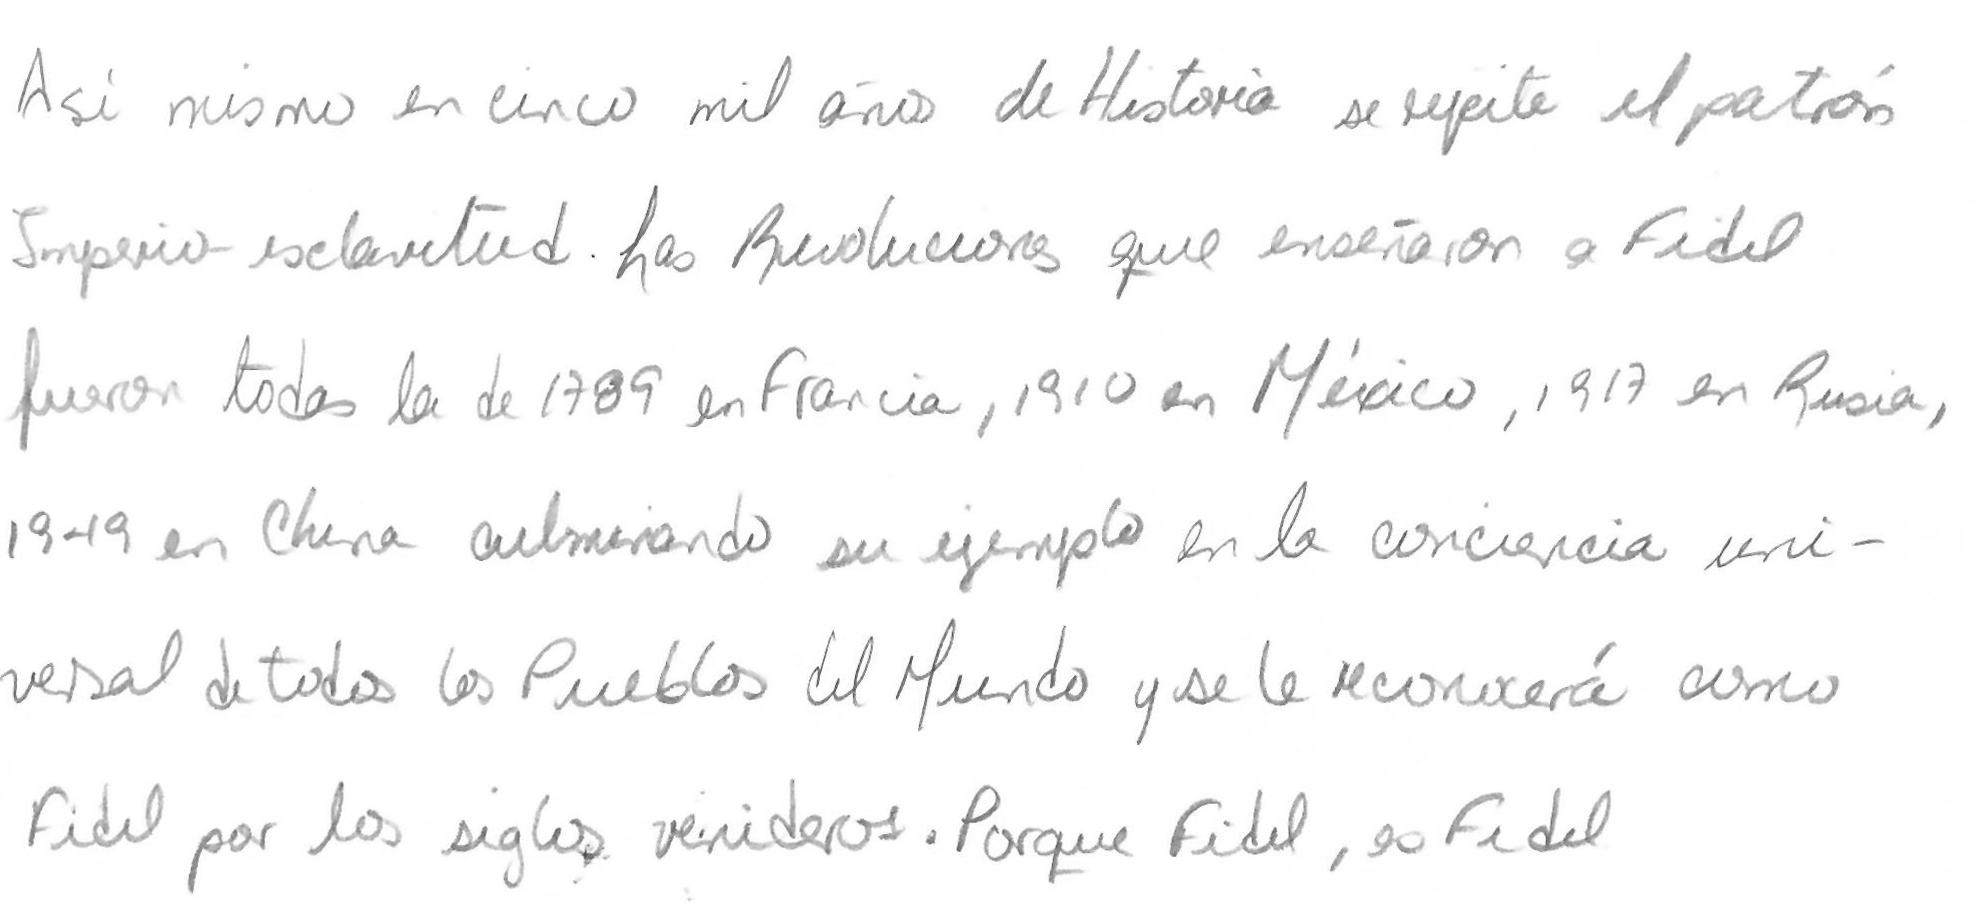 Así mismo en cinco mil años de Historia se repite el patrón
Imperio-esclavitud. Las Revoluciones que enseñaron a Fidel
fueron todas la de 1789 en Francia, 1910 en México, 1917 en Rusia,
1949 en China culminando su ejemplo en la conciencia uni-
versal de todos los Pueblos del Mundo y se le reconocerá como
Fidel por los siglos venideros. Porque Fidel, es Fidel